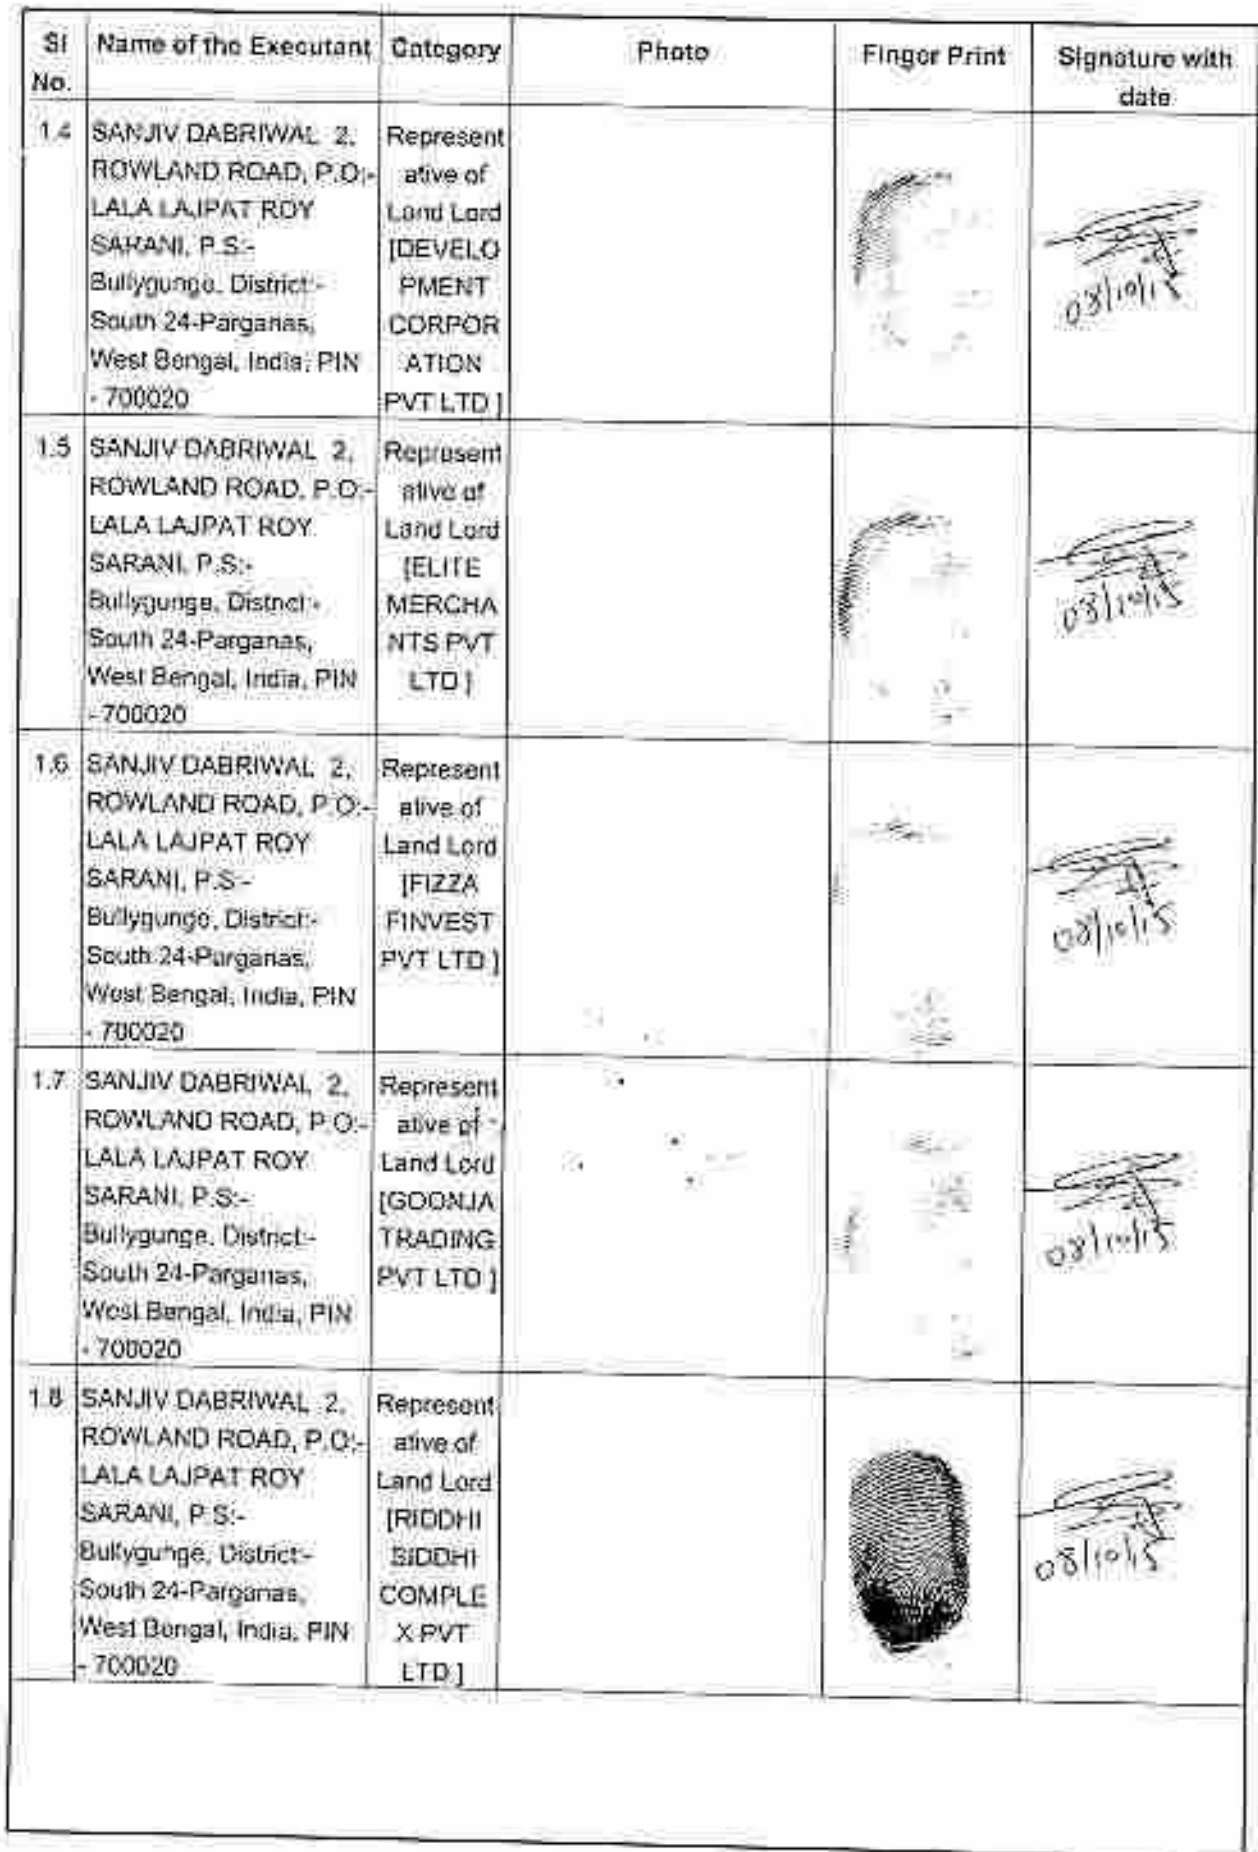 Sl No. Name of the Executant Category Photo Finger Print Signature with date
1.4 SANJIV DABRIWAL 2,
ROWLAND ROAD, P.O:-
LALA LAJPAT ROY
SARANI, P.S:-
Bullygunge, District:-
South 24-Parganas,
West Bengal, India, PIN
- 700020
Represent
ative of
Land Lord
[DEVELO
PMENT
CORPOR
ATION
PVT LTD ]
08/10/15
1.5 SANJIV DABRIWAL 2,
ROWLAND ROAD, P.O:-
LALA LAJPAT ROY
SARANI, P.S:-
Bullygunge, District:-
South 24-Parganas,
West Bengal, India, PIN
- 700020
Represent
ative of
Land Lord
[ELITE
MERCHA
NTS PVT
LTD ]
08/10/15
1.6 SANJIV DABRIWAL 2,
ROWLAND ROAD, P.O:-
LALA LAJPAT ROY
SARANI, P.S:-
Bullygunge, District:-
South 24-Parganas,
West Bengal, India, PIN
- 700020
Represent
ative of
Land Lord
[FIZZA
FINVEST
PVT LTD ]
08/10/15
1.7 SANJIV DABRIWAL 2,
ROWLAND ROAD, P.O:-
LALA LAJPAT ROY
SARANI, P.S:-
Bullygunge, District:-
South 24-Parganas,
West Bengal, India, PIN
- 700020
Represent
ative of
Land Lord
[GOONJA
TRADING
PVT LTD ]
08/10/15
1.8 SANJIV DABRIWAL 2,
ROWLAND ROAD, P.O:-
LALA LAJPAT ROY
SARANI, P.S:-
Bullygunge, District:-
South 24-Parganas,
West Bengal, India, PIN
- 700020
Represent
ative of
Land Lord
[RIDDHI
SIDDHI
COMPLE
X PVT
LTD ]
08/10/15